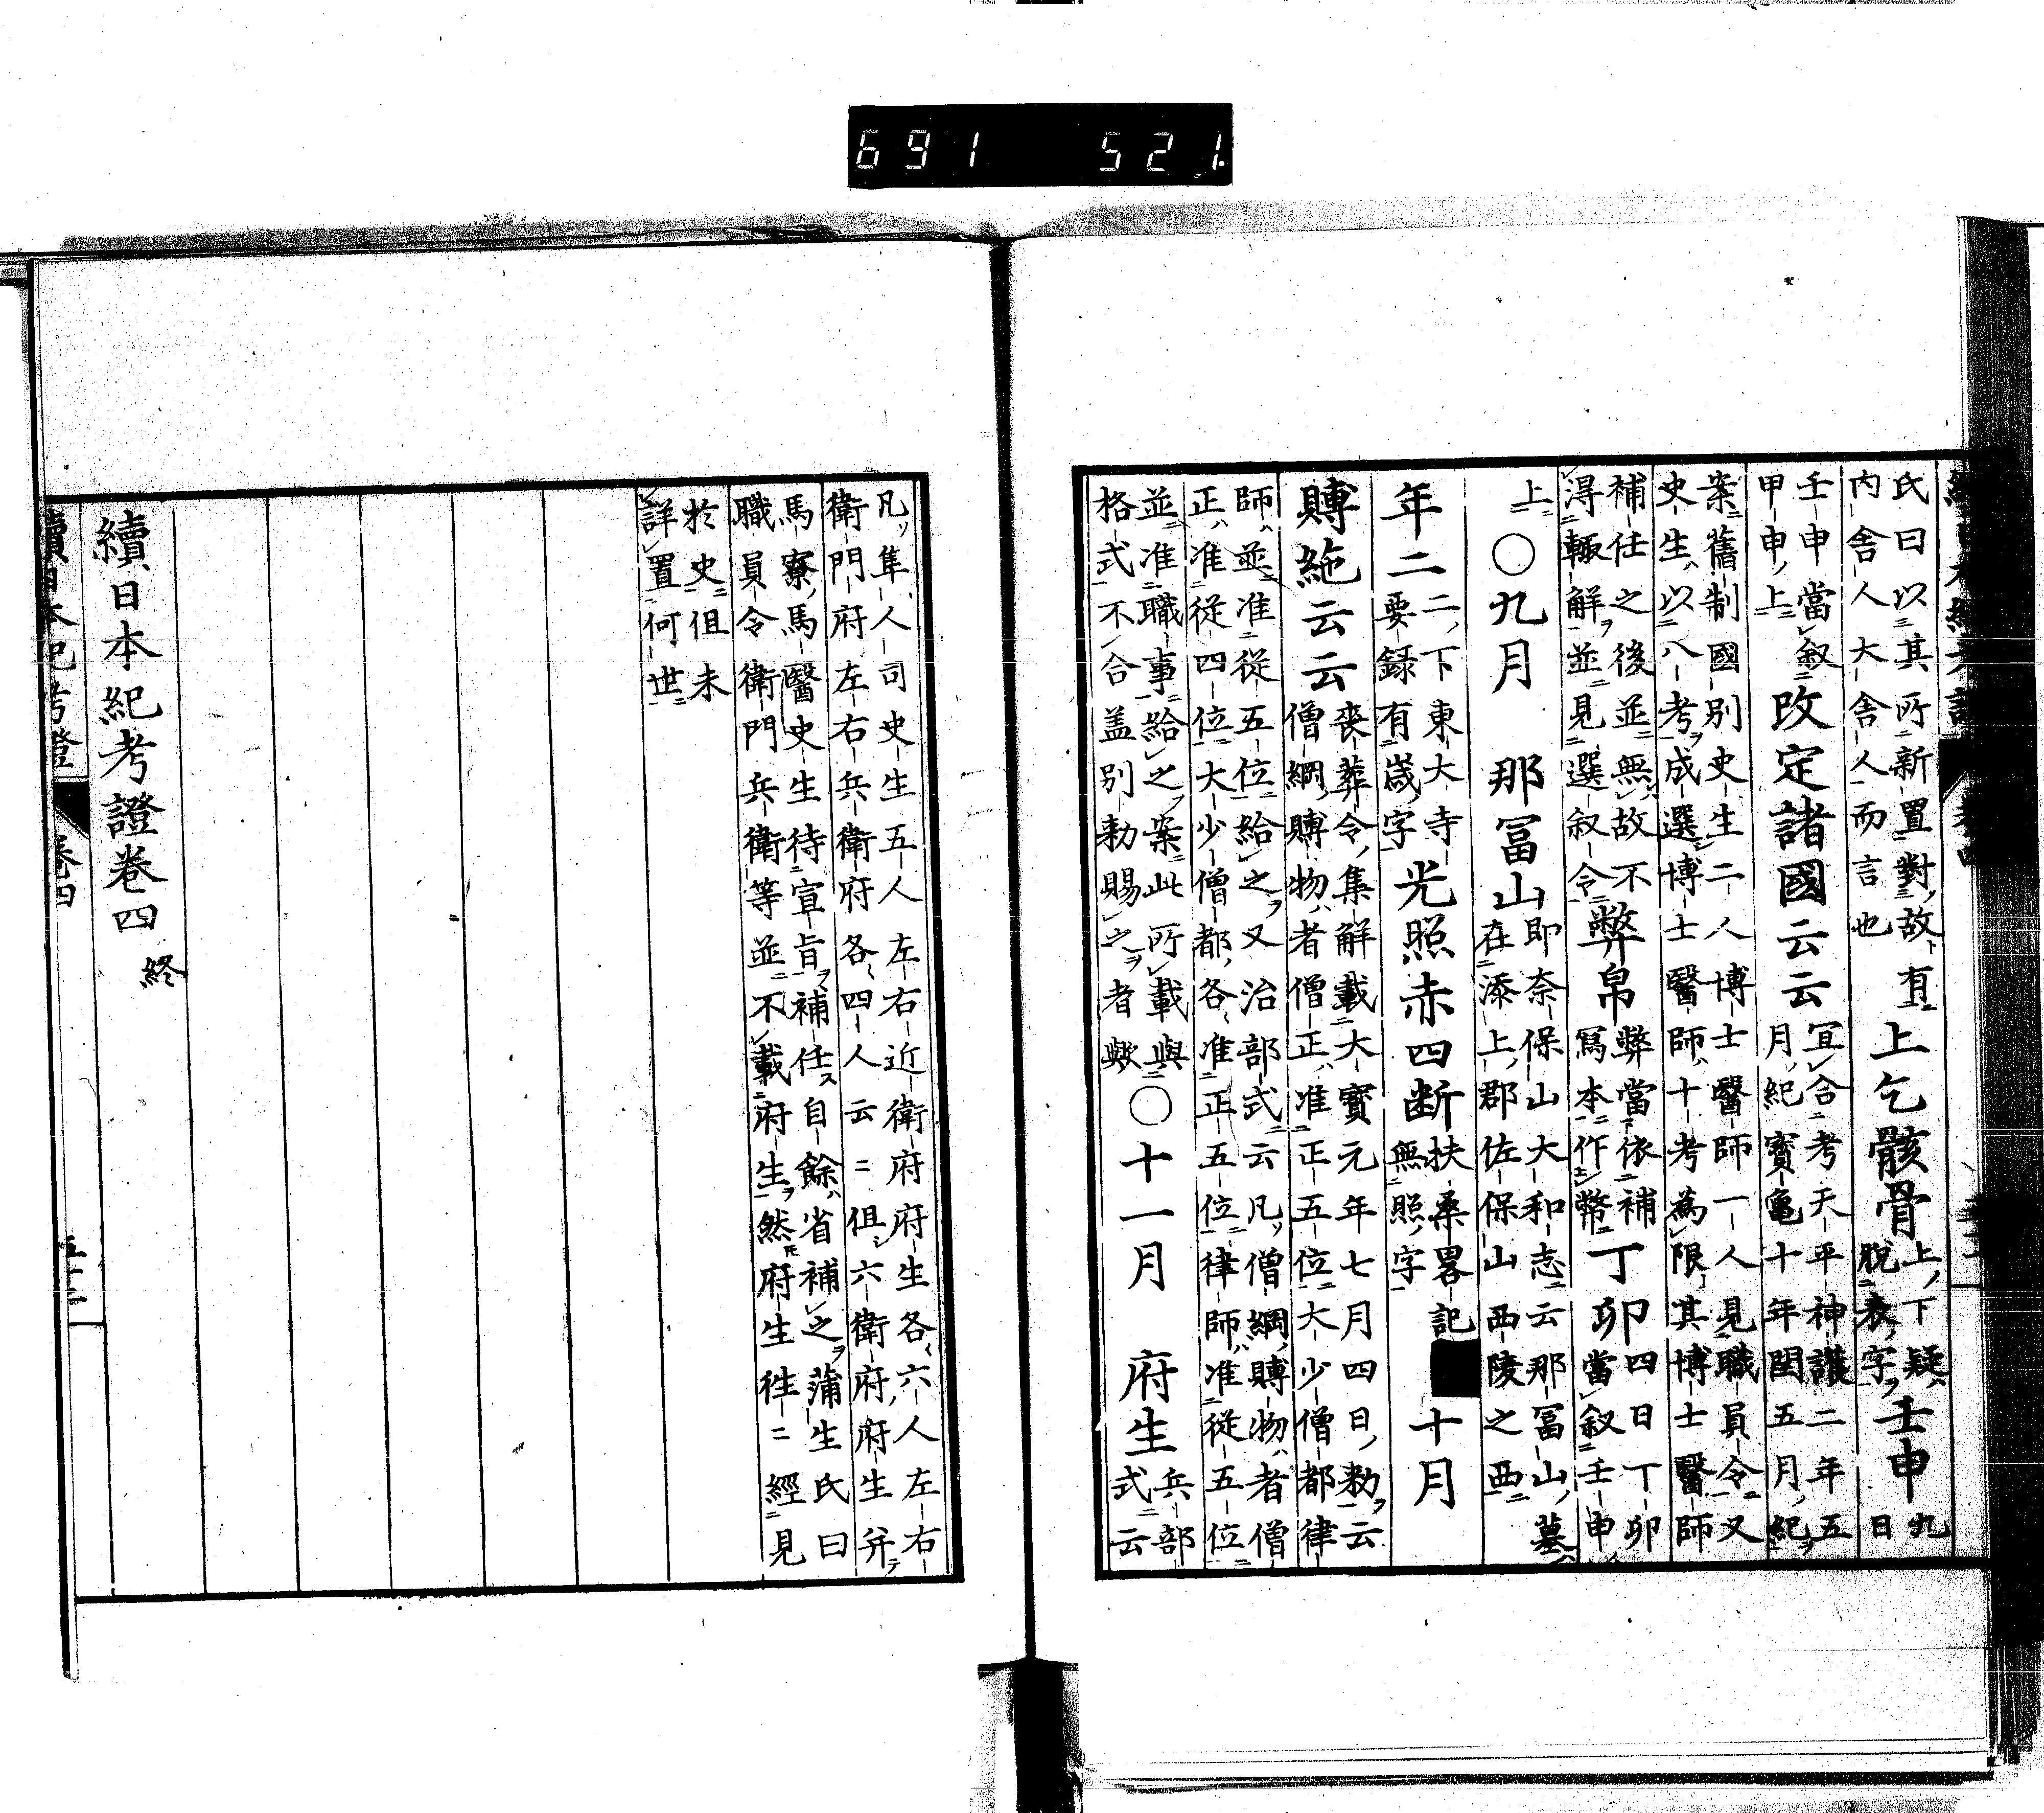 691 521.
氏曰以其所新置對故有
内舍人大舍人而言也
上乞骸骨
上下疑
脱表字
壬申
九
日
壬申當叙
甲申上
改定諸國云云
宜合考天平神護二年五
月紀寶亀十年閏五月紀
案舊制國別史生二人博士醫師一人見職員令又
史生以八考成選博士醫師十考為限其博士醫師
補任之後並無故不
得輙解並見選叙令
弊帛
弊當依補
寫本作幣
丁卯
四日丁卯
當叙壬申
上
〇九月
那冨山
即奈保山大和志云那冨山墓
在添上郡佐保山西陵之西
年二
二下東大寺
要録有歳字
光照赤四断
扶桑畧記
無照字
十月
賻絁云云
喪葬令集解載大寶元年七月四日勅云
僧綱賻物者僧正准正五位大少僧都律
師並准從五位給之又治部式云凡僧綱賻物者僧
正准從四位大少僧都各准正五位律師准從五位
並准職事給之案此所載與
格式不合盖別勅賜之者歟
〇十一月
府生
兵部
式云
凡隼人司史生五人左右近衛府府生各六人左右
衛門府左右兵衛府各四人云〻但六衛府府生并
馬寮馬醫史生待宣旨補任自餘省補之蒲生氏曰
職員令衛門兵衛等並不載府生然府生往〻經見
於史但未
詳置何世
續日本紀考證卷四 終
續日本紀考證 卷四